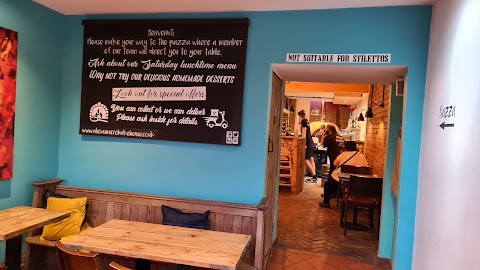 Benvenuti
Please make your way to the piazza where a member
of our team will direct you to your table.
Ask about our Saturday lunchtime menu
Why not try our delicious homemade desserts
Look out for special offers
You can collect or we can deliver
Please ask inside for details
NOT SUITABLE FOR STILETTOS
PIAZZA